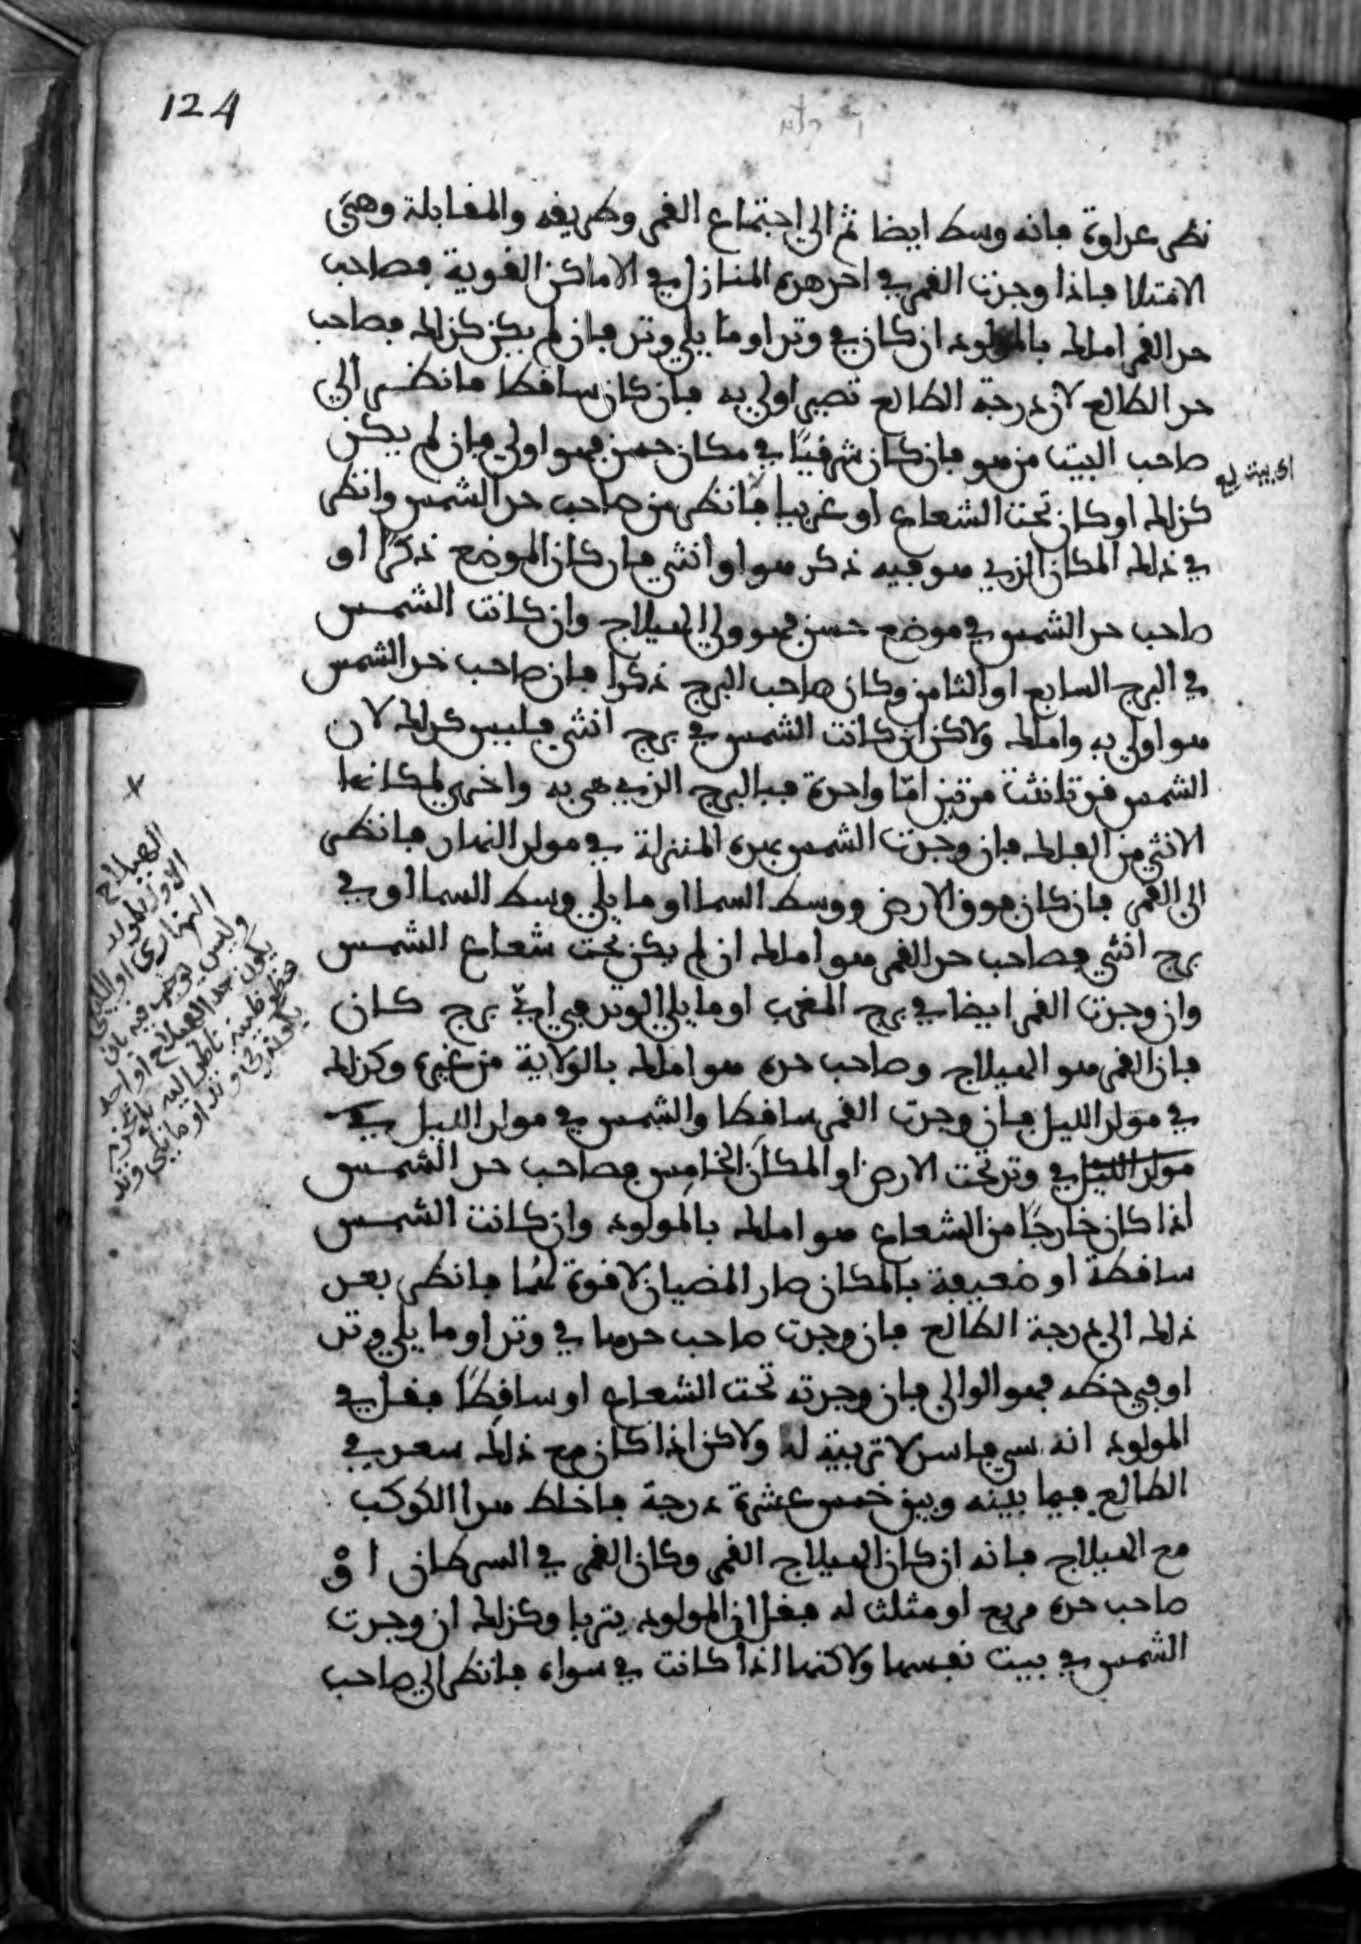 124
نظر عداوة فانه وسط ايضا ثم الي اجتماع القمر وطريقه والمقابلة وهي
الامتلا فاذا وجدت القمر في احد هذه المنازل في الاماكن القوية فصاحب
حد القمر املك بالمولود ان كان في وتد او ما يلي وتد فان لم يكن كذلك فصاحب
حد الطالع لان درجة الطالع تصير اولي به فان كان ساقطا فانظر الي
صاحب البيت من هو فان كان شرقيًا في مكان حسن فهو اولي فان لم يكن
كذلك او كان تحت الشعاع او غربيا فانظر من صاحب حد الشمس وانظر
في ذلك المكان الذي هو فيه ذكر هو او انثي فان كان الموضع ذكرًا او
صاحب حد الشمس في موضع حسن فهو ولي الهيلاج وان كانت الشمس
في البرج السابع او الثامن وكان صاحب البرج ذكرا فان صاحب حد الشمس
هو اولي به واملك ولاكن ان كانت الشمس في برج انثي فليس كذلك لان
الشمس قد تانثت مرتين امّا واحدة فبالبرج الذي هي به واخري لمكانها
الانثي من الفلك فان وجدت الشمس بهذه المنزلة في مولد النهار فانظر
الي القمر فان كان فوق الارض ووسط السما او ما يلي وسط السما او في
برج انثي فصاحب حد القمر هو املك ان لم يكن تحت شعاع الشمس
وان وجدت القمر ايضا في برج المغرب او ما يلي الوتد في ايّ برج كان
فان القمر هو الهيلاج وصاحب حده هو املك بالولاية من غيره وكذلك
في مولد الليل فان وجدت القمر ساقطا والشمس في مولد الليل في
مولد الليل في وتد تحت الارض او المكان الخامس فصاحب حد الشمس
اذا كان خارجًا من الشعاع هو املك بالمولود وان كانت الشمس
ساقطة او ضعيفة بالمكان صار المضيان لا قوة لهما فانظر بعد
ذلك الي درجة الطالع فان وجدت صاحب حدها في وتد او ما يلي وتد
او في حظه فهو الوالي فان وجدته تحت الشعاع او ساقطًا فقل في
المولود انه لا تربية له ولاكن اذا كان مع ذلك سعد في
الطالع فيما بينه وبين خمس عشرة درجة فاخلط هذا الكوكب
مع الهيلاج فانه ان كان الهيلاج القمر وكان القمر في السرطان اوْ
صاحب حده مربع او مثلث له فقل ان المولود يتربا وكذلك ان وجدت
الشمس في بيت نفسها ولاكنها اذا كانت في سواه فانظر الي صاحب
اي بيت
الهيلاج
الاول لمولد
النهاري او الليلي